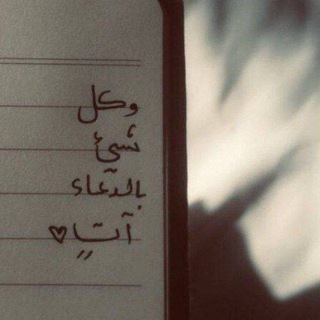 وكل
شيئ
بالدعاء
آتٍ♡